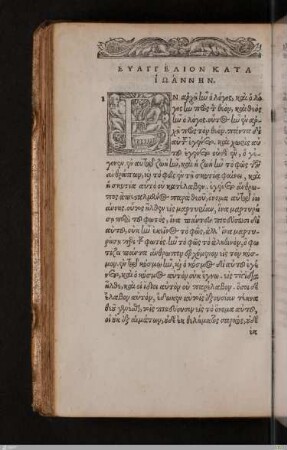 ΕΥΑΓΓΕΛΙΟΝ ΚΑΤΑ
ΙΩΑΝΝΗΝ.
1 ΕΝ ἀρχῇ ἦν ὁ λόγος, καὶ ὁ λό
γος ἦν πρὸς τὸν θεὸν, καὶ θεὸς
ἦν ὁ λόγος. οὗτος ἦν ἐν ἀρ
χῇ πρὸς τὸν θεόν. πάντα δι᾽
αὐτοῦ ἐγένετο, καὶ χωρὶς αὐ
τοῦ ἐγένετο οὐδὲ ἓν, ὃ γέ
γονεν. ἐν αὐτῷ ζωὴ ἦν, καὶ ἡ ζωὴ ἦν τὸ φῶς τῶν
ἀνθρώπων, καὶ τὸ φῶς ἐν τῇ σκοτίᾳ φαίνει, καὶ
ἡ σκοτία αὐτὸ οὐ κατέλαβεν. ἐγένετο ἄνθρω
πος ἀπεσταλμένος παρὰ θεοῦ, ὄνομα αὐτῷ ἰωάννης
οὗτος ἦλθεν εἰς μαρτυρίαν, ἵνα μαρτυρή
σῃ περὶ τοῦ φωτός, ἵνα πάντες πιστεύσωσι δι᾽
αὐτοῦ. οὐκ ἦν ἐκεῖνος τὸ φῶς, ἀλλ᾽ ἵνα μαρτυ
ρήσῃ περὶ τοῦ φωτός. ἦν τὸ φῶς τὸ ἀληθινὸν, ὃ φω
τίζει πάντα ἄνθρωπον ἐρχόμενον εἰς τὸν κόσ
μον. ἐν τῷ κόσμῳ ἦν, καὶ ὁ κόσμος δι᾽ αὐτοῦ ἐγέ
νετο, καὶ ὁ κόσμος αὐτὸν οὐκ ἔγνω. εἰς τὰ ἴδια
ἦλθεν, καὶ οἱ ἴδιοι αὐτὸν οὐ παρέλαβον. ὅσοι δὲ
ἔλαβον αὐτὸν, ἔδωκεν αὐτοῖς ἐξουσίαν τέκνα
θεοῦ γενέσθαι, τοῖς πιστεύουσιν εἰς τὸ ὄνομα αὐτοῦ,
οἳ οὐκ ἐξ αἱμάτων, οὐδὲ ἐκ θελήματος σαρκὸς, οὐδὲ
ἐκ